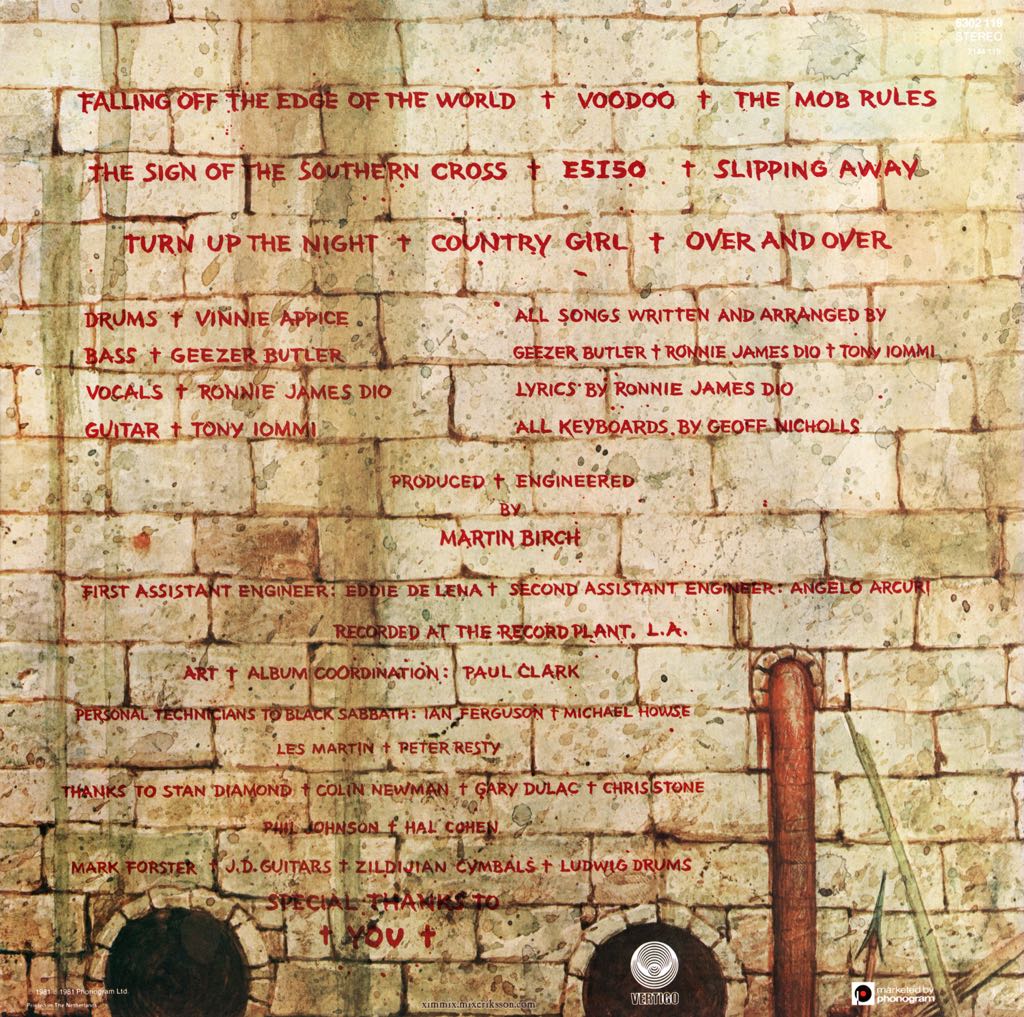 6302 119
STEREO
7144 119
FALLING OFF THE EDGE OF THE WORLD † VOODOO † THE MOB RULES
THE SIGN OF THE SOUTHERN CROSS † E5150 † SLIPPING AWAY
TURN UP THE NIGHT † COUNTRY GIRL † OVER AND OVER
DRUMS † VINNIE APPICE
BASS † GEEZER BUTLER
VOCALS † RONNIE JAMES DIO
GUITAR † TONY IOMMI
ALL SONGS WRITTEN AND ARRANGED BY
GEEZER BUTLER † RONNIE JAMES DIO † TONY IOMMI
LYRICS BY RONNIE JAMES DIO
ALL KEYBOARDS BY GEOFF NICHOLLS
PRODUCED † ENGINEERED
BY
MARTIN BIRCH
FIRST ASSISTANT ENGINEER: EDDIE DE LENA † SECOND ASSISTANT ENGINEER: ANGELO ARCURI
RECORDED AT THE RECORD PLANT, L.A.
ART † ALBUM COORDINATION: PAUL CLARK
PERSONAL TECHNICIANS TO BLACK SABBATH: IAN FERGUSON † MICHAEL HOWSE
LES MARTIN † PETER RESTY
THANKS TO STAN DIAMOND † COLIN NEWMAN † GARY DULAC † CHRIS STONE
PHIL JOHNSON † HAL COHEN
MARK FORSTER † J.D. GUITARS † ZILDIJIAN CYMBALS † LUDWIG DRUMS
SPECIAL THANKS TO
† YOU †
1981 ℗ 1981 Phonogram Ltd.
Printed in The Netherlands
ximmix.mixeriksson.com
VERTIGO
marketed by
phonogram